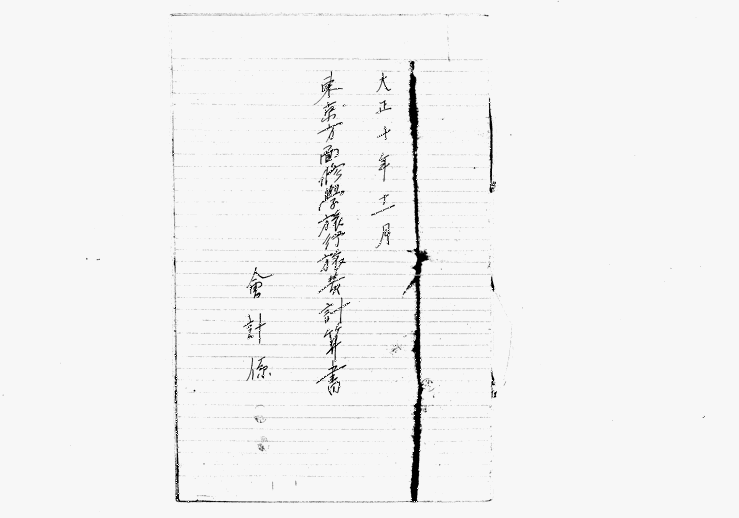 大正十年十一月
東京方面修學旅行旅費計算書
會計係